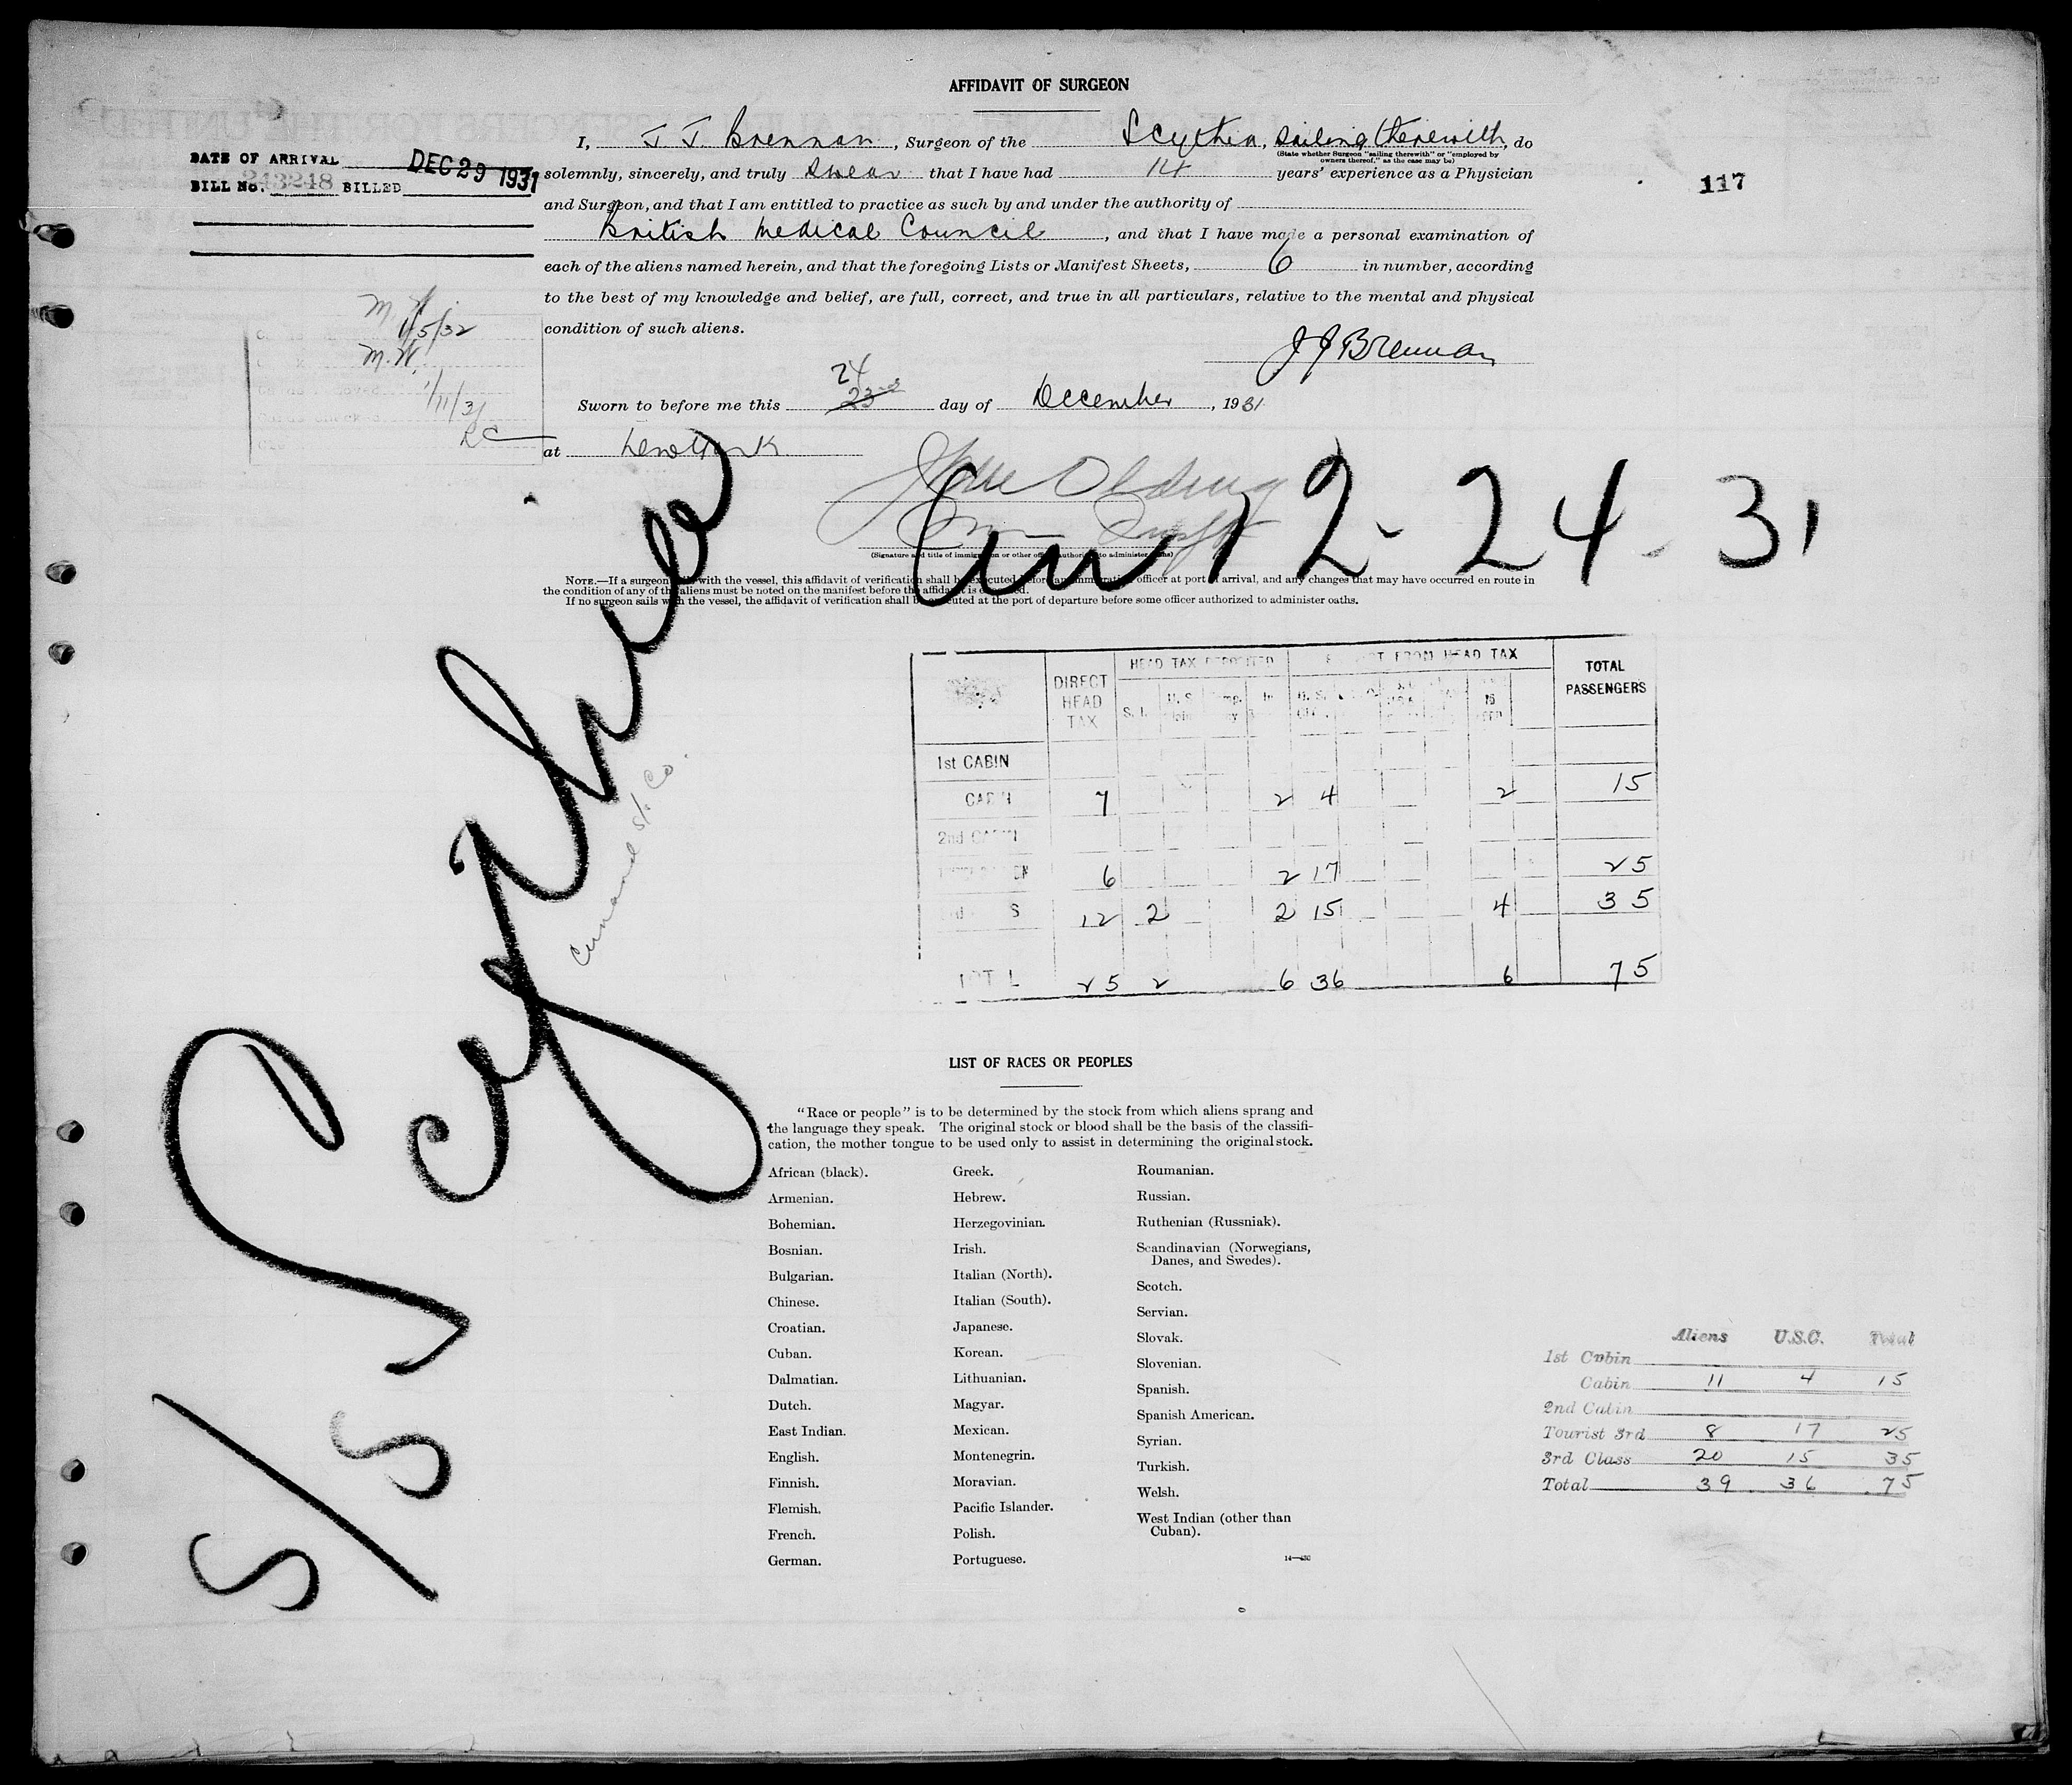 AFFIDAVIT OF SURGEON
I, J J. Brennan, Surgeon of the Scythia, sailing therewith, do
(State whether Surgeon "sailing therewith" or "employed by
owners thereof," as the case may be)
DATE OF ARRIVAL DEC 29 1931
solemnly, sincerely, and truly swear that I have had 14 years' experience as a Physician
117
BILL No. 243248 BILLED
and Surgeon, and that I am entitled to practice as such by and under the authority of
British Medical Council, and that I have made a personal examination of
each of the aliens named herein, and that the foregoing Lists or Manifest Sheets, 6 in number, according
to the best of my knowledge and belief, are full, correct, and true in all particulars, relative to the mental and physical
condition of such aliens.
1/5/32
M.W.
1/11/31
J J Brennan
24
Sworn to before me this 23rd day of December, 1931
at New York
Arr 12-24-31
(Signature and title of immigration or other officer authorized to administer oaths)
NOTE.—If a surgeon sails with the vessel, this affidavit of verification shall be executed before an immigration officer at port of arrival, and any changes that may have occurred en route in
the condition of any of the aliens must be noted on the manifest before the affidavit is executed.
If no surgeon sails with the vessel, the affidavit of verification shall be executed at the port of departure before some officer authorized to administer oaths.
S/S Scythia
Cunard S/S. Co.
DIRECT HEAD TAX HEAD TAX DEPOSITED EXEMPT FROM HEAD TAX TOTAL PASSENGERS
1st CABIN
CABIN 7 2 4 2 15
2nd CABIN
6 2 17 25
12 2 2 15 4 35
TOTAL 25 2 6 36 6 75
LIST OF RACES OR PEOPLES
"Race or people" is to be determined by the stock from which aliens sprang and
the language they speak. The original stock or blood shall be the basis of the classifi-
cation, the mother tongue to be used only to assist in determining the original stock.
African (black).
Armenian.
Bohemian.
Bosnian.
Bulgarian.
Chinese.
Croatian.
Cuban.
Dalmatian.
Dutch.
East Indian.
English.
Finnish.
Flemish.
French.
German.
Greek.
Hebrew.
Herzegovinian.
Irish.
Italian (North).
Italian (South).
Japanese.
Korean.
Lithuanian.
Magyar.
Mexican.
Montenegrin.
Moravian.
Pacific Islander.
Polish.
Portuguese.
Roumanian.
Russian.
Ruthenian (Russniak).
Scandinavian (Norwegians,
Danes, and Swedes).
Scotch.
Servian.
Slovak.
Slovenian.
Spanish.
Spanish American.
Syrian.
Turkish.
Welsh.
West Indian (other than
Cuban).
Aliens U.S.C. Total
1st Cabin
Cabin 11 4 15
2nd Cabin
Tourist 3rd 8 17 25
3rd Class 20 15 35
Total 39 36 75